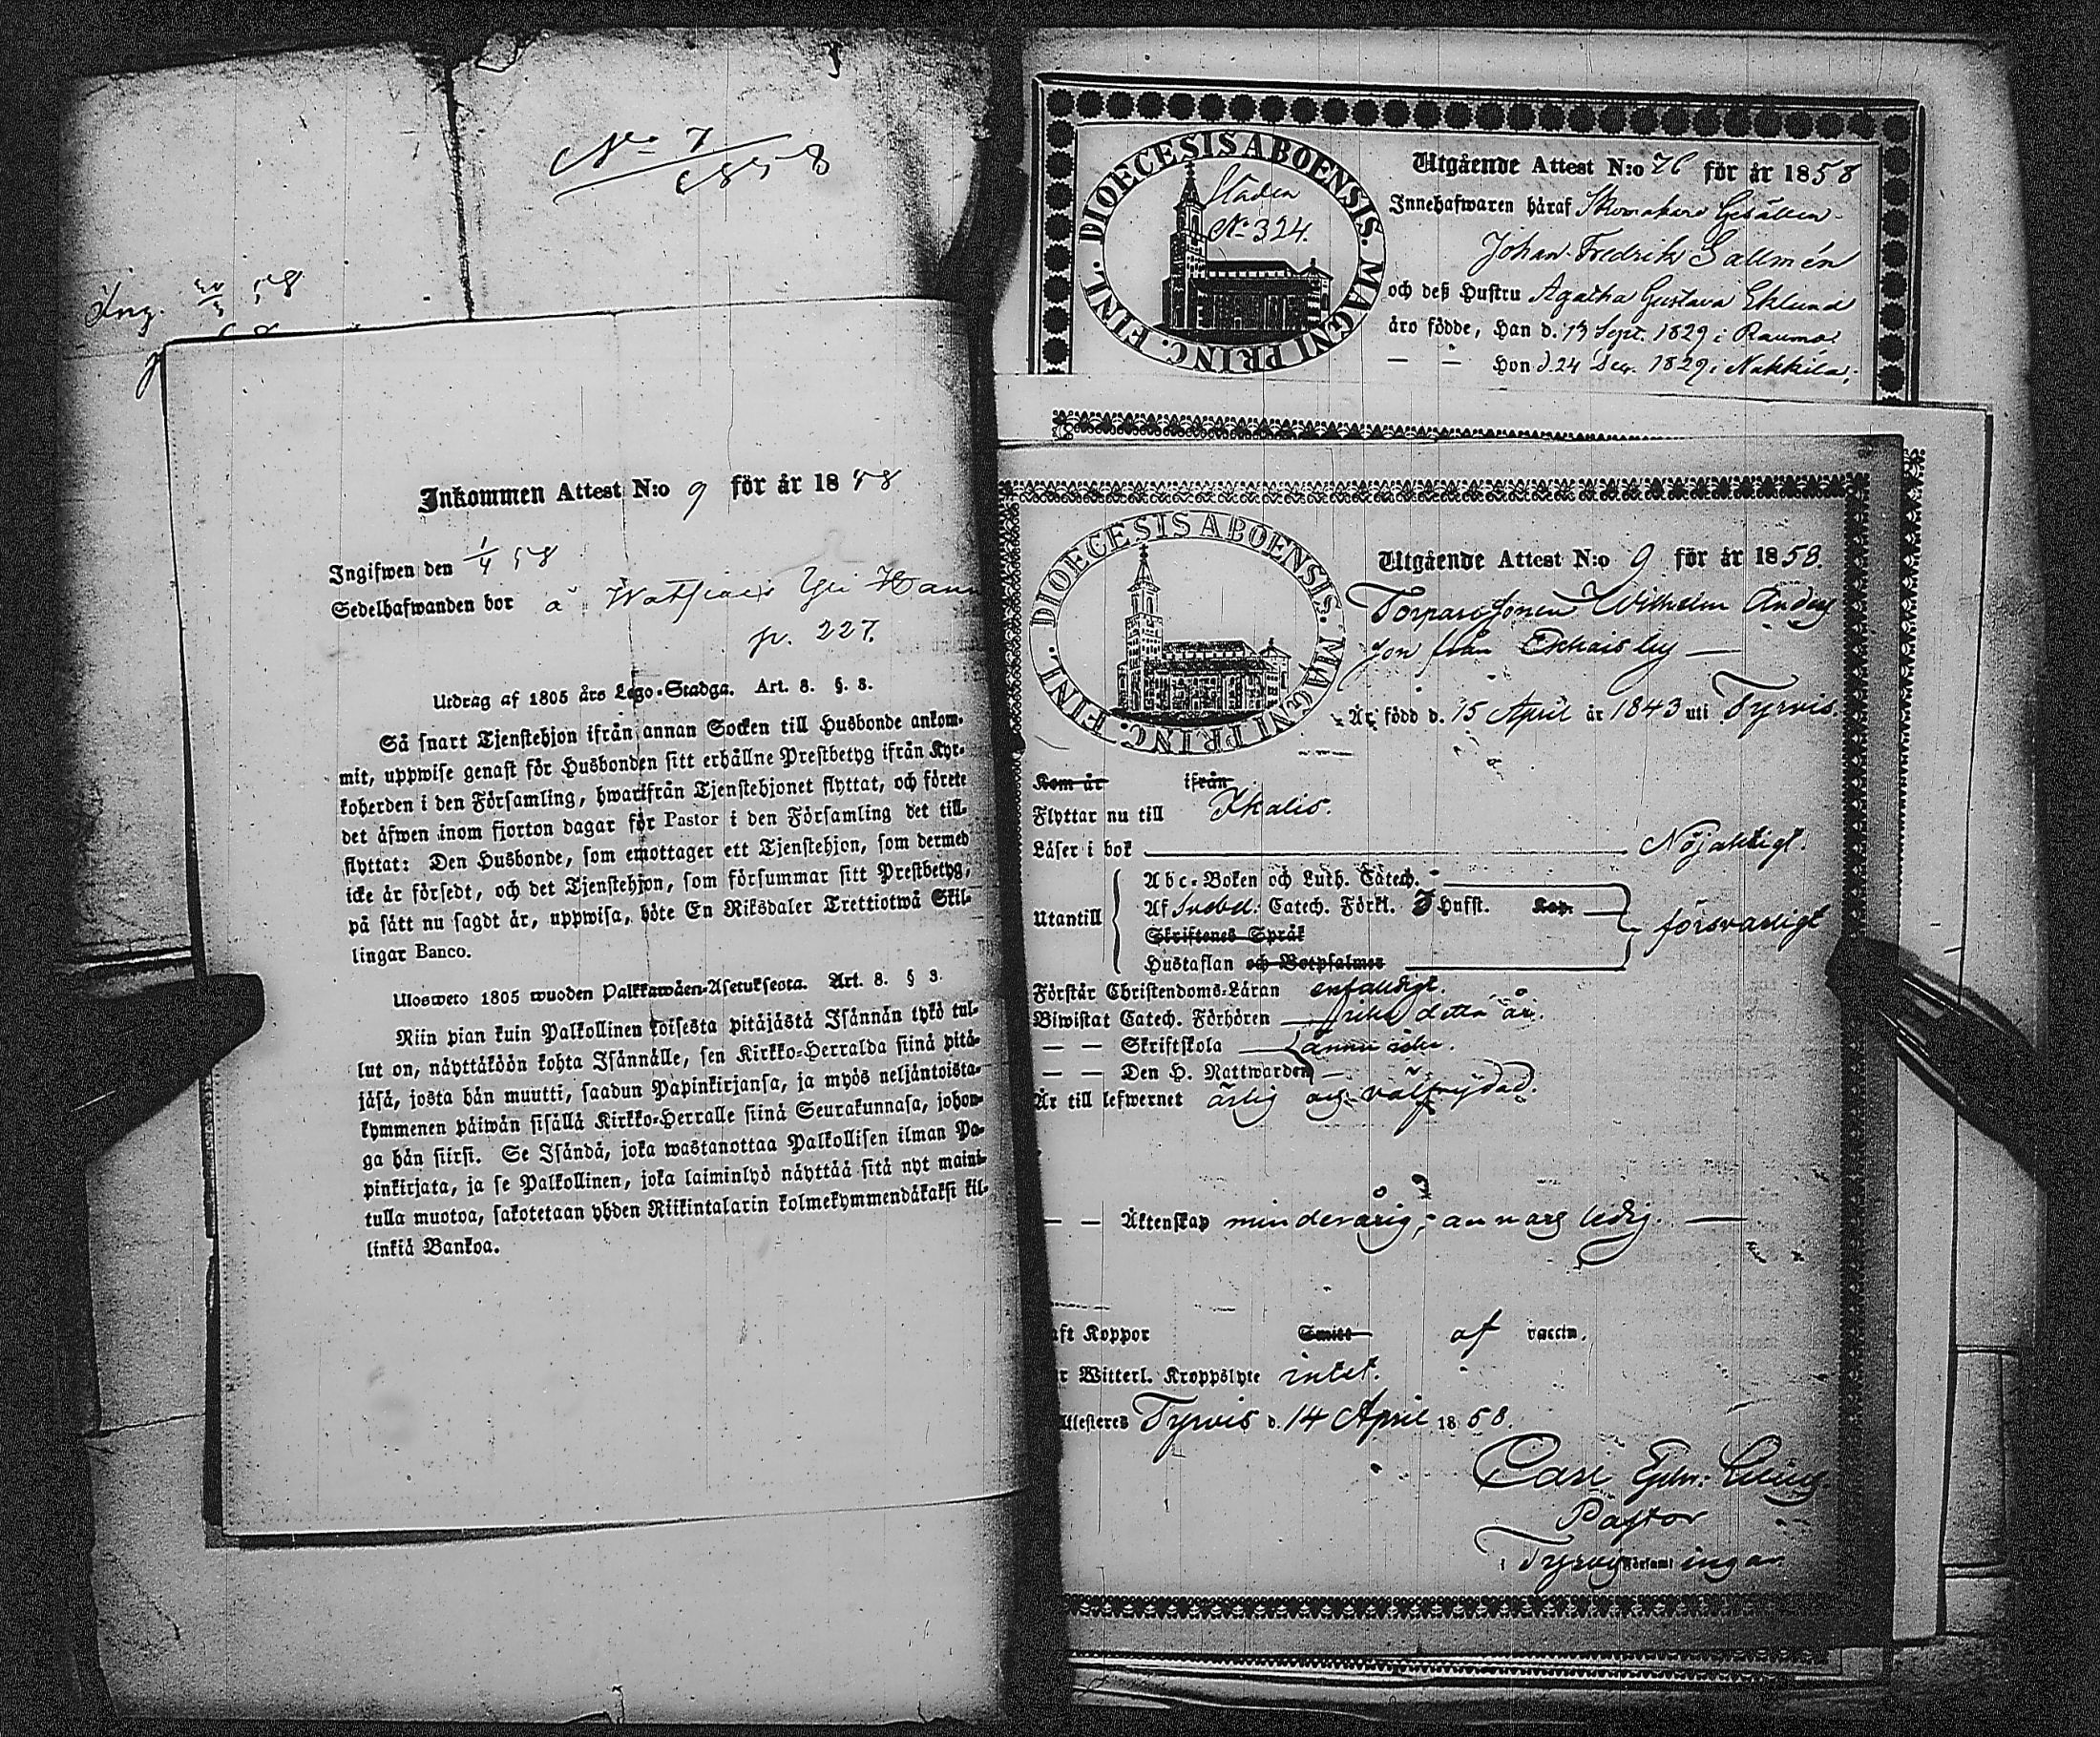 No 7
1858
Ing. 58
Inkommen Attest N:o 9 för år 1858
Ingifwen den 1/4 58
Sedelhafwanden bor å
p. 227.
Utdrag af 1805 års Lego-Stadga. Art. 8. §. 3.
Så snart Tjenstehjon ifrån annan Socken till Husbonde ankom-
mit, uppwise genast för Husbonden sitt erhållne Prestbetyg ifrån Kyr-
koherden i den Församling, hwarifrån Tjenstehjonet flyttat, och förete
det äfwen inom fjorton dagar för Pastor i den Församling det till-
flyttat: Den Husbonde, som emottager ett Tjenstehjon, som dermed
icke är försedt, och det Tjenstehjon, som försummar sitt Prestbetyg,
på sätt nu sagdt är, uppwisa, böte En Riksdaler Trettiotwå Skil-
lingar Banco.
Ulosweto 1805 wuoden Palkkawäen-Asetuksesta. Art. 8. § 3.
Niin pian kuin Palkollinen toisesta pitäjästä Isännän tykö tul-
lut on, näyttäköön kohta Isännälle, sen Kirkko-Herralda siinä pitä-
jäsä, josta hän muutti, saadun Papinkirjansa, ja myös neljäntoista-
kymmenen päiwän sisällä Kirkko-Herralle siinä Seurakunnasa, johon-
ga hän siirsi. Se Isändä, joka wastanottaa Palkollisen ilman Pa-
pinkirjata, ja se Palkollinen, joka laiminlyö näyttää sitä nyt maini-
tulla muotoa, sakotetaan yhden Riikintalarin kolmekymmendäkaksi kil-
linkiä Bankoa.
DIOECESIS ABOENSIS. MAGNI PRINC. FINL.
Staden
No 324.
Utgående Attest N:o 76 för år 1858
Innehafwaren häraf Skomakare Gesällen
Johan Fredrik Sallmén
och deß Hustru Agatha Gustava Eklund
äro födde, Han d. 13 Sept. 1829 i Raumo.
— — Hon d. 24 Dec. 1829 i Nakkila;
DIOECESIS ABOENSIS. MAGNI PRINC. FINL.
Utgående Attest N:o 9 för år 1858.
Torparesonen Wilhelm Anders
son från by —
Är född d. 15 April år 1843 uti Tyrvis.
Kom år ifrån
Flyttar nu till Ikalis.
Läser i bok Nöjaktigt.
Utantill
Abc-Boken och Luth. Catech.
Af Svebel. Catech. Förkl. 3 Hufst. Kap.
Skriftenes Språk
Hustaflan och Botpsalmer
försvarligt
Förstår Christendoms-Läran enfaldigt.
Biwistat Catech. Förhören detta år.
— — Skriftskola ännu icke.
— — Den H. Nattwarden
Är till lefwernet ärlig och välfrejdad.
— — Äktenskap minderårig, annars ledig. —
aft Koppor Smitt af vaccin.
r Witterl. Kroppslyte intet.
Attesteres Tyrvis d. 14 April 1858.
Carl
Pastor
i Tyrvis Församl ingar.